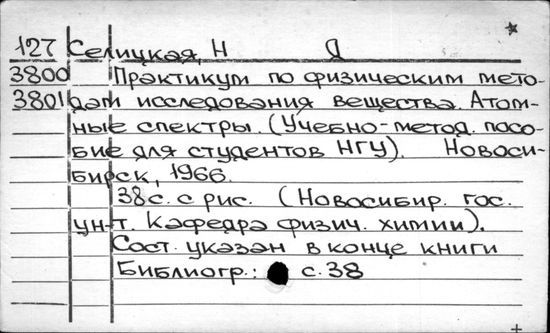 127 Селицкая, Н Я
3800 Практикум по физическим мето-
3801 дам исследования вещества. Атом-
ные спектры. (Учебно-метод. посо-
бие для студентов НГУ). Новоси-
бирск, 1966.
38с. с рис. (Новосибир. гос.
ун-т. Кафедра физич. химии).
Сост. указан в конце книги
Библиогр.: с. 38